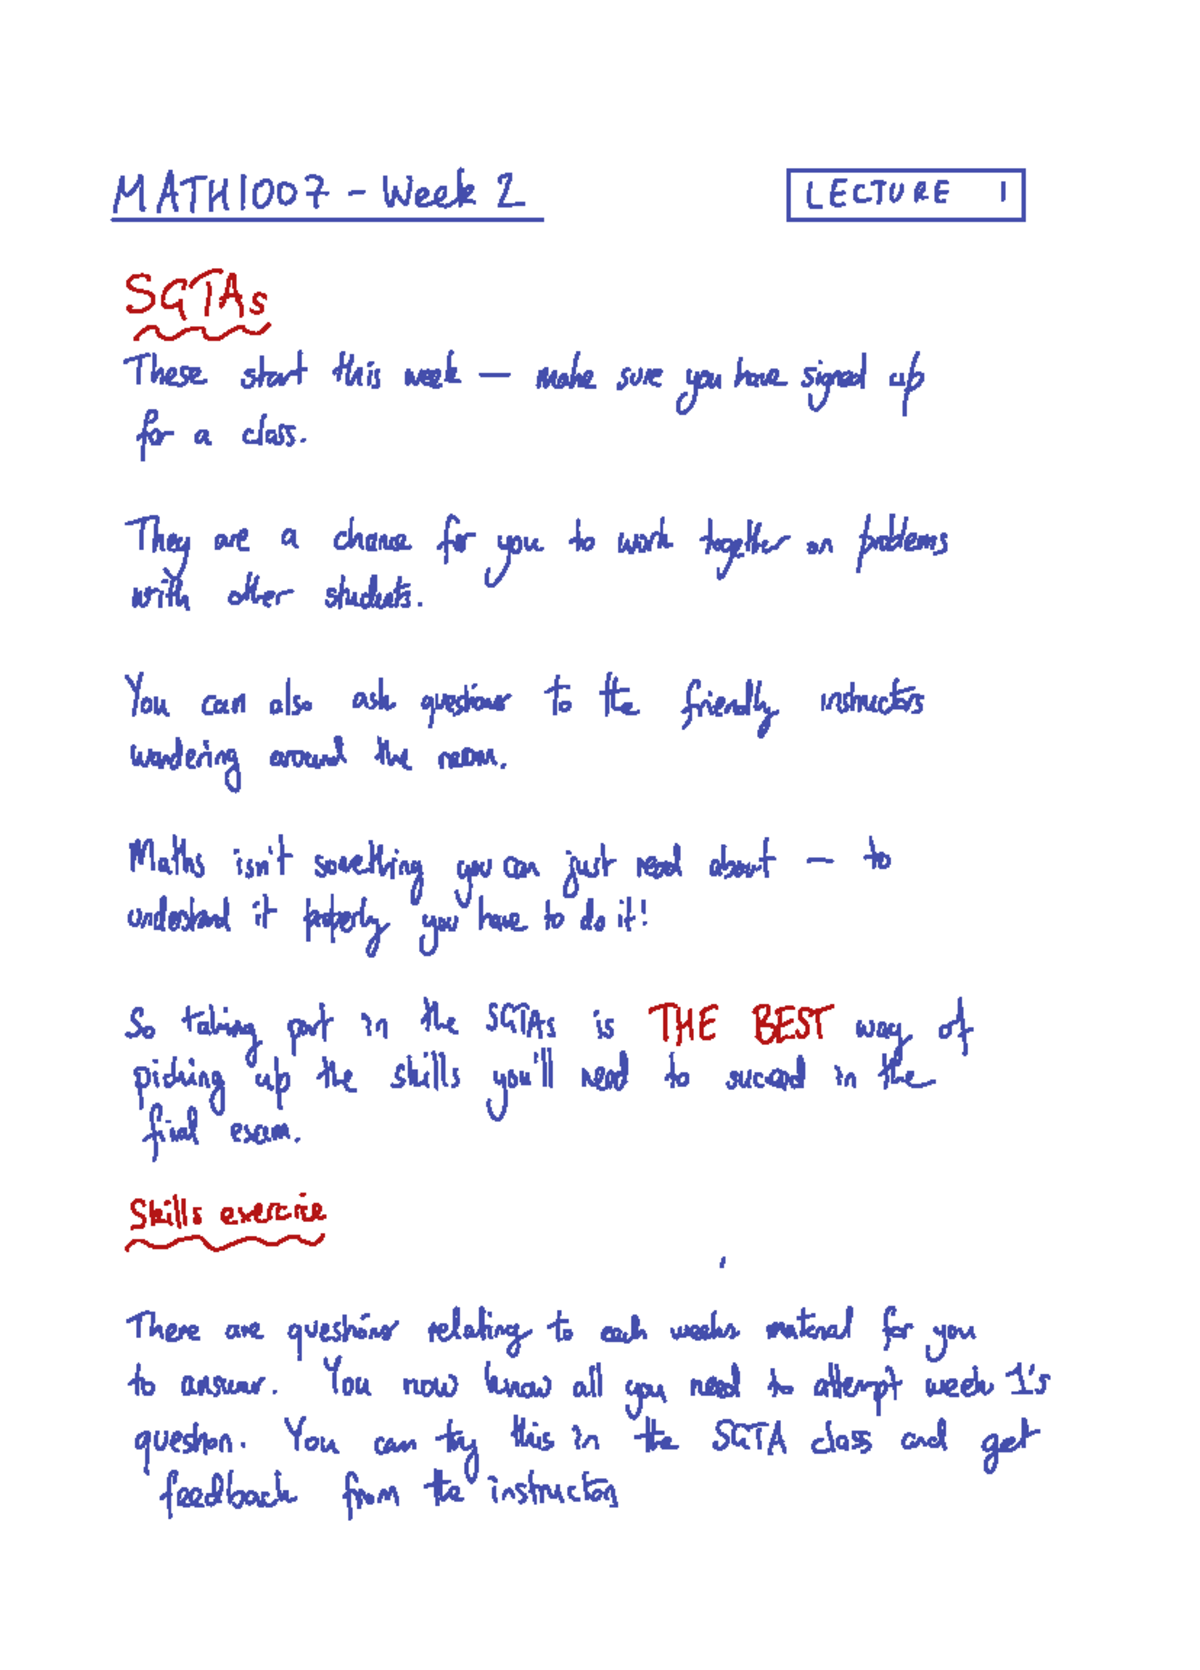 MATH1007 - Week 2
LECTURE 1
SGTAs
These start this week — make sure you have signed up
for a class.
They are a chance for you to work together on problems
with other students.
You can also ask questions to the friendly instructors
wandering around the room.
Maths isn't something you can just read about — to
understand it properly you have to do it!
So taking part in the SGTAs is THE BEST way of
picking up the skills you'll need to succeed in the
final exam.
Skills exercise
There are questions relating to each weeks material for you
to answer. You now know all you need to attempt week 1's
question. You can try this in the SGTA class and get
feedback from the instructors